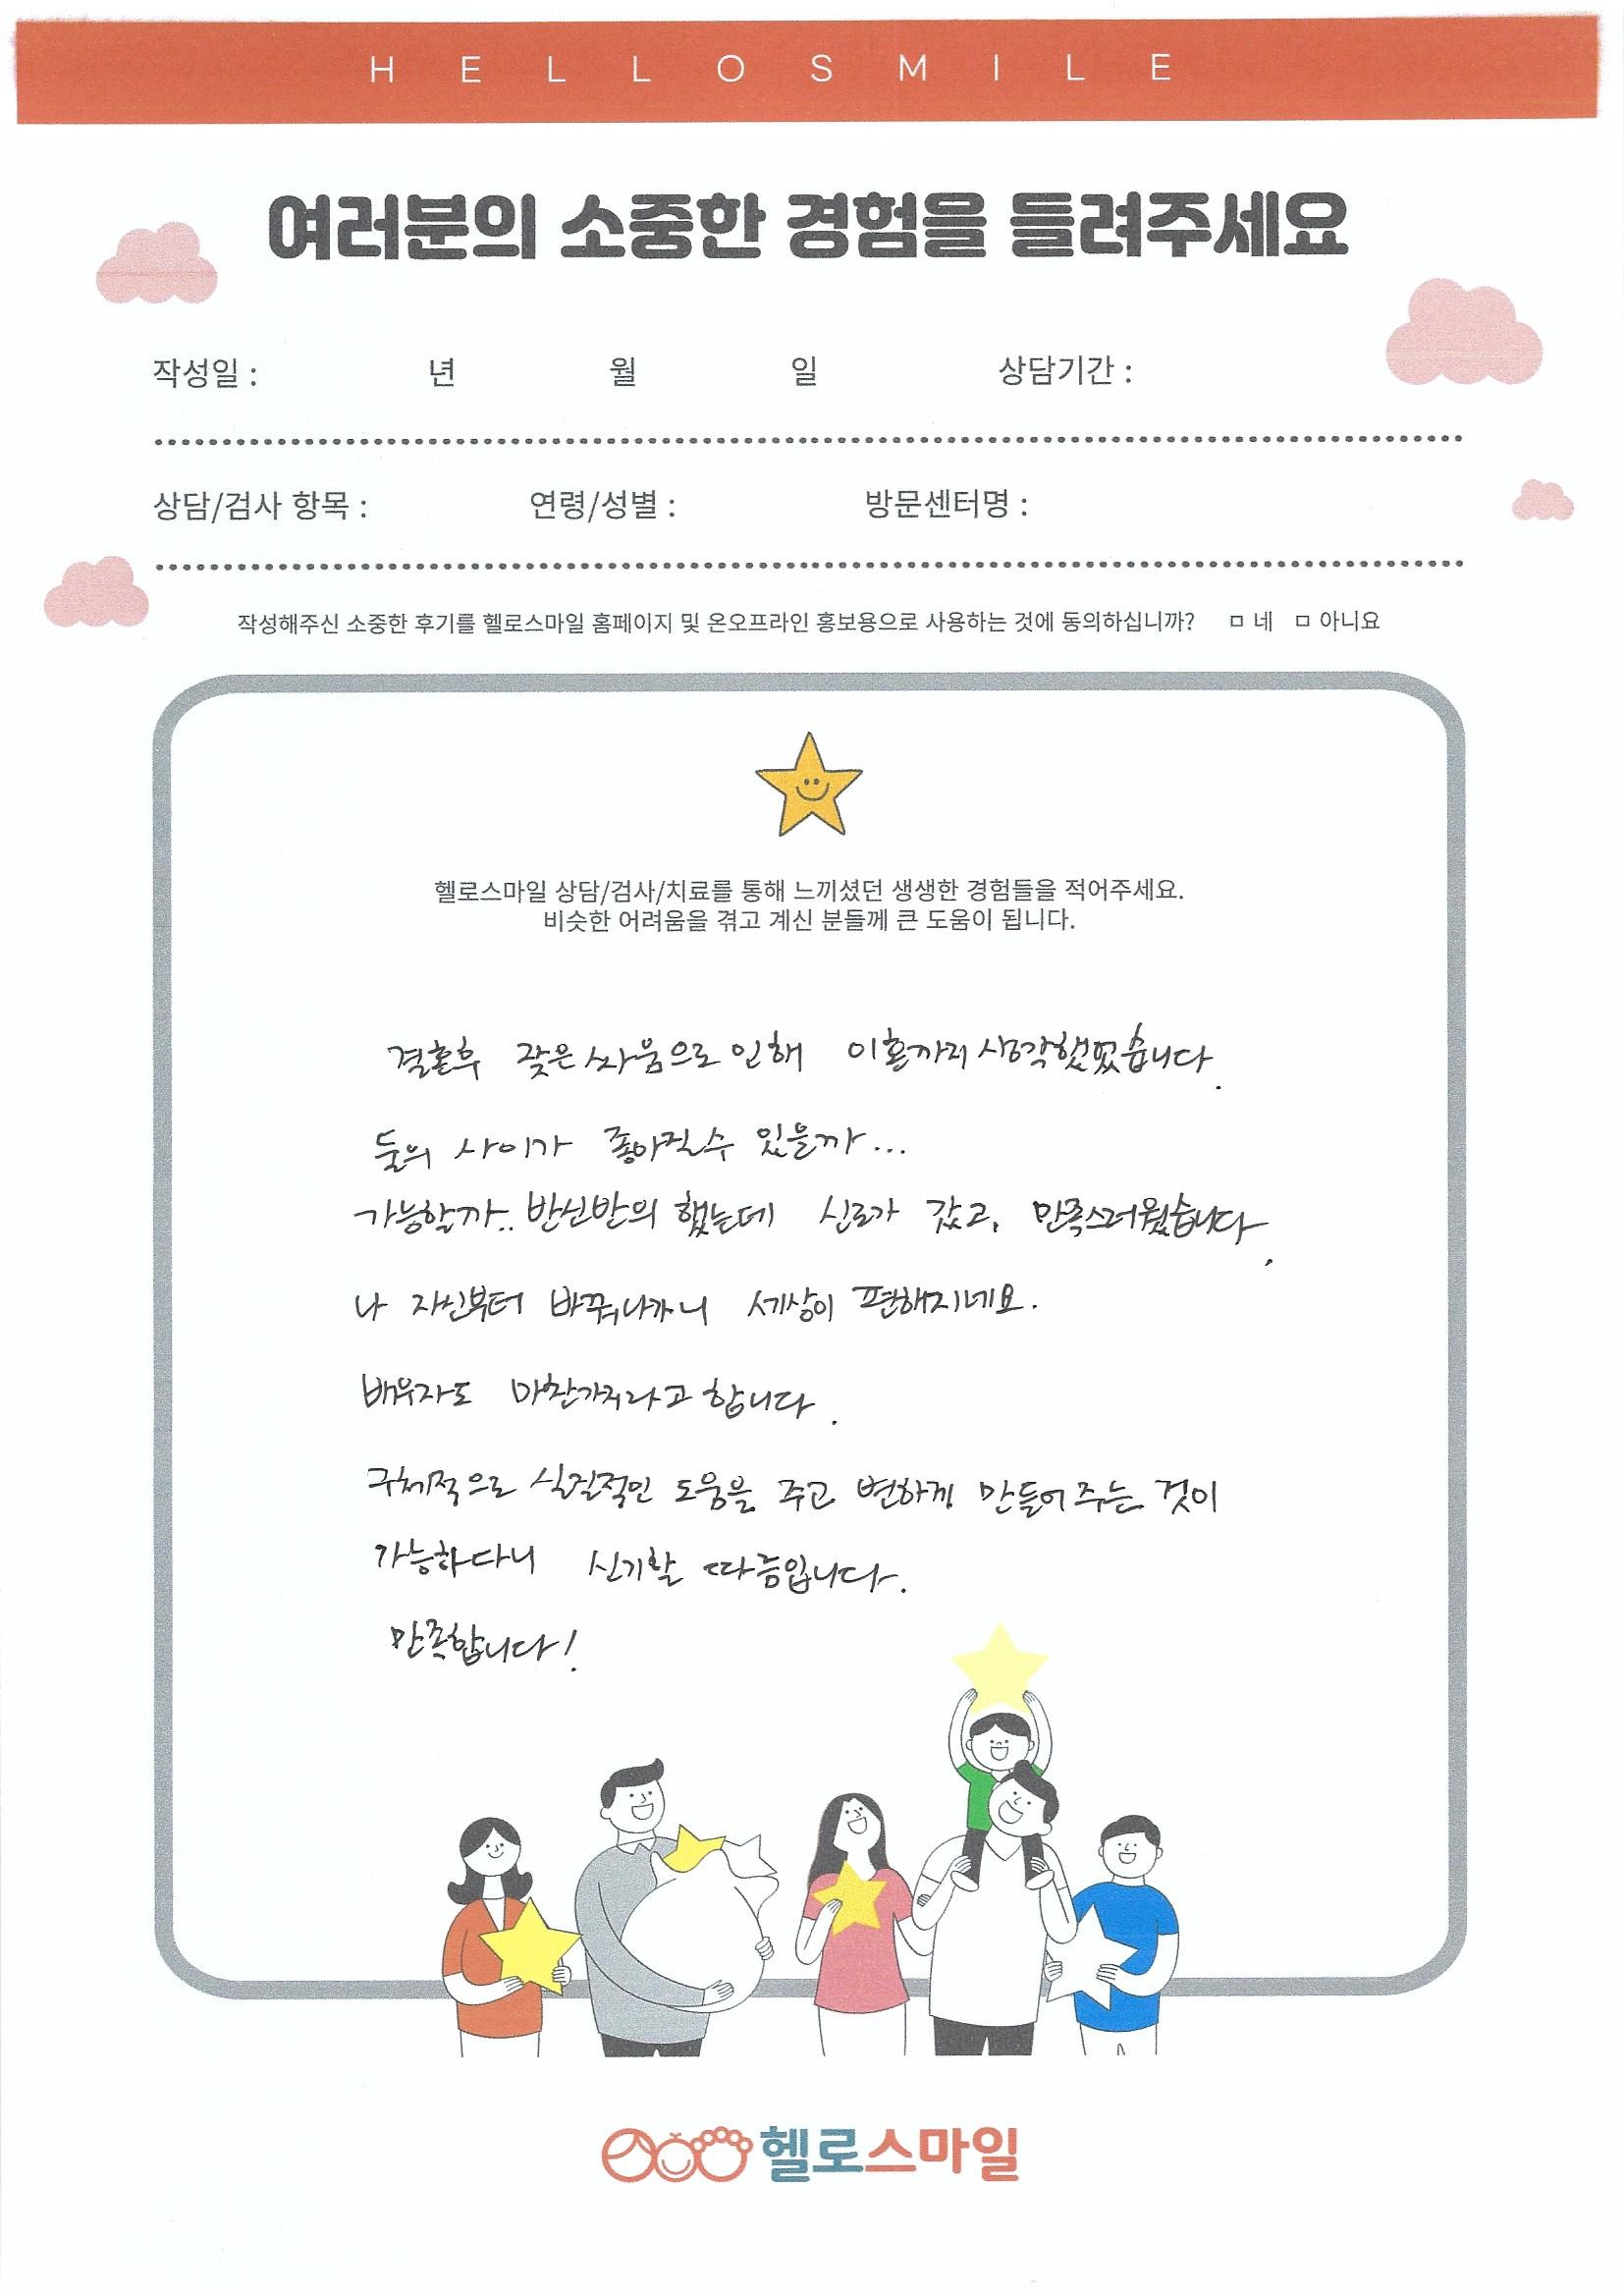 HELLOSMILE
여러분의 소중한 경험을 들려주세요
작성일 : 년 월 일 상담기간 :
상담/검사 항목 : 연령/성별 : 방문센터명 :
작성해주신 소중한 후기를 헬로스마일 홈페이지 및 온오프라인 홍보용으로 사용하는 것에 동의하십니까? ㅁ 네 ㅁ 아니요
헬로스마일 상담/검사/치료를 통해 느끼셨던 생생한 경험들을 적어주세요.
비슷한 어려움을 겪고 계신 분들께 큰 도움이 됩니다.
결혼후 잦은 싸움으로 인해 이혼까지 생각했었습니다.
둘의 사이가 좋아질수 있을까...
가능할까.. 반신반의 했는데 신뢰가 갔고, 만족스러웠습니다.
나 자신부터 바꿔나가니 세상이 편해지네요.
배우자도 마찬가지라고 합니다.
구체적으로 실질적인 도움을 주고 변하게 만들어 주는 것이
가능하다니 신기할 따름입니다.
만족합니다!
헬로스마일